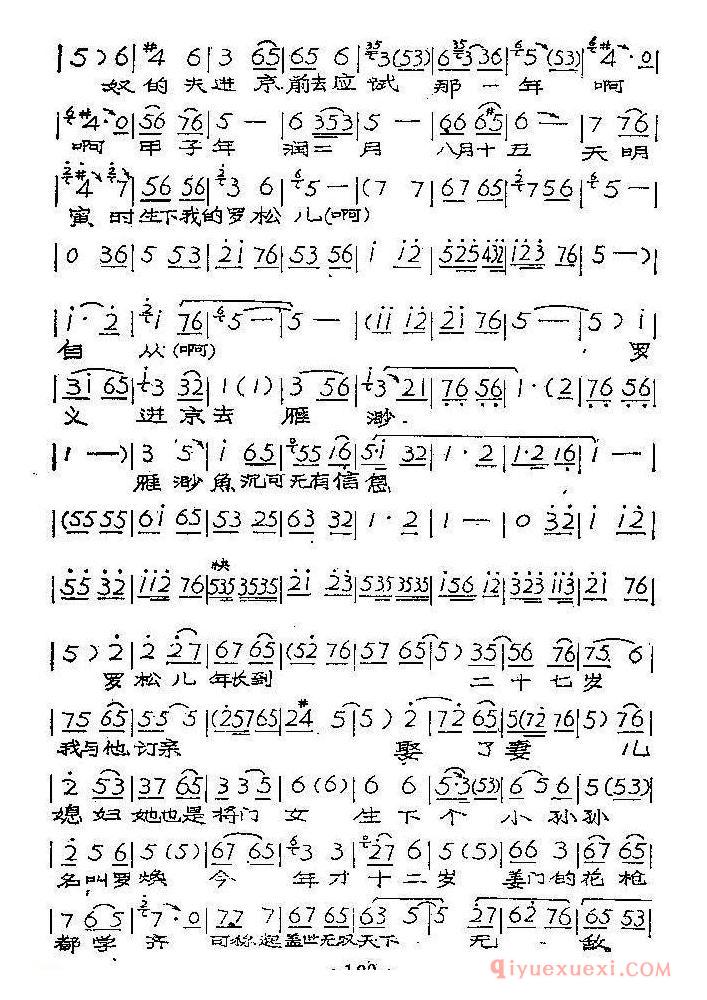 |5)6|#4 6|3 65|65 6|3(53)|6336|5(53)|#4·0|
奴的夫进京前去应试那一年啊
|#4·0|56 76|5 —|6 353|5 —|66 65|5 —|7 76|
啊甲子年润二月八月十五天明
|#4 7|56 56|3 6|5 —|(7 7|67 65|7 56|5 —|
寅时生下我的罗松儿(啊)
|0 36|5 53|21 76|53 56|i i2|525432|123 76|5 —)|
|i· 2|i 76|5 —|5 —|(ii i2|2i 76|5 —|5)|
自从(啊)罗
|3i 65|3 32|1(1)|3 56|3 21|76 56|1·(2|76 56|
义进京去雁渺
|1 —)|3 5|i 65|55 i6|5·i 32|1·2|1·2 16|1 —|
雁渺鱼沉可无有信息
|(55 55|6i 65|53 25|63 32|1·2|1 —|0 32|i i2|
|55 32|ii2 76|535 3535|2i 23|535 3535|i56 i2|323 ii3|2i 76|
快
|5)2|2 27|67 65|(52 76|57 65|5)35|56 76|75 6|
罗松儿年长到二十七岁
|75 65|55 5|(25765|24 5|5)2|72 65|5(72 76|5)76|
我与他订亲娶了妻儿
|2 53|37 65|33 5|6(6)|6 6|5·3(53)|6 5 6|5(53)|
媳妇她也是将门女生下个小孙孙
|2 5 6|5(5)|67 65|3 3|27 6|5(5)|66 3|67 65|
名叫罗焕今年才十二岁姜门的花枪
|7 65|7·0|77 7|67 65|63 5|5 27|6 2 76|65 53|
都学齐可称起盖世无双天下无敌
qiyuexuexi.com